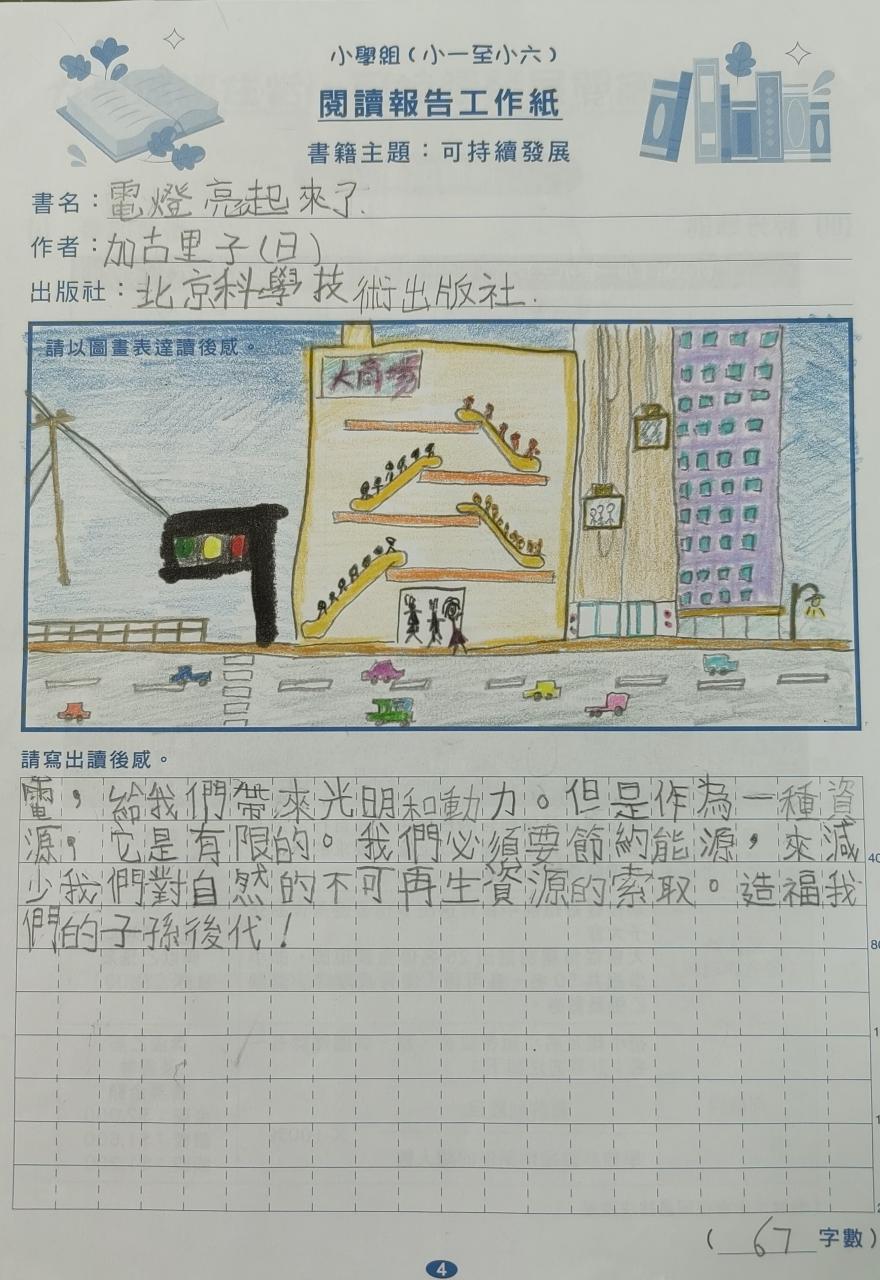 小學組（小一至小六）
閱讀報告工作紙
書籍主題：可持續發展
書名：電燈亮起來了.
作者：加古里子(日)
出版社：北京科學技術出版社.
請以圖畫表達讀後感。
大商場
請寫出讀後感。
電，給我們帶來光明和動力。但是作為一種資
源，它是有限的。我們必須要節約能源，來減
40
少我們對自然的不可再生資源的索取。造福我
們的子孫後代！
80
( 67 字數)
4